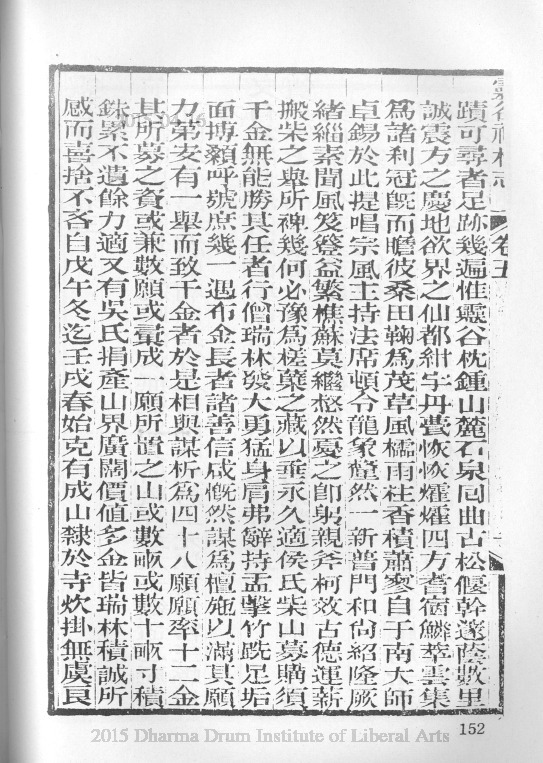 靈谷禪林志 卷五
蹟可尋者足跡幾遍惟靈谷枕鍾山麓石泉回曲古松偃幹邃蔭數里
誠震方之慶地欲界之仙都紺宇丹甍恢恢燿燿四方耆宿鱗萃雲集
為諸利冠旣而瞻彼桑田鞠為茂草風檽雨柱香積蕭寥自于南大師
卓錫於此提唱宗風主持法席頓令龍象巋然一新普門和尚紹隆厥
緒緇素聞風笈簦益繁樵蘇莫繼愁然憂之卽躬親斧柯效古德運薪
搬柴之舉所裨幾何必豫為槎蘖之藏以垂永久適侯氏柴山募購須
千金無能勝其任者行僧瑞林發大勇猛身肩弗辭持盂擊竹跣足垢
面搏顙呼號庶幾一遇布金長者諸善信咸慨然謀為檀施以滿其願
力第安有一舉而致千金者於是相與謀析為四十八願願率十二金
其所募之資或兼數願或彙成一願所置之山或數畝或數十畝寸積
銖累不遺餘力適又有吳氏捐產山界廣闊價値多金皆瑞林積誠所
感而喜捨不吝自戊午冬迄壬戌春始克有成山隸於寺炊掛無虞艮
152
2015 Dharma Drum Institute of Liberal Arts